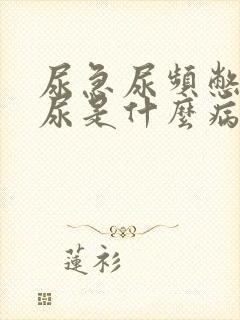 尿急尿頻憋
尿是什麼病
蓮衫